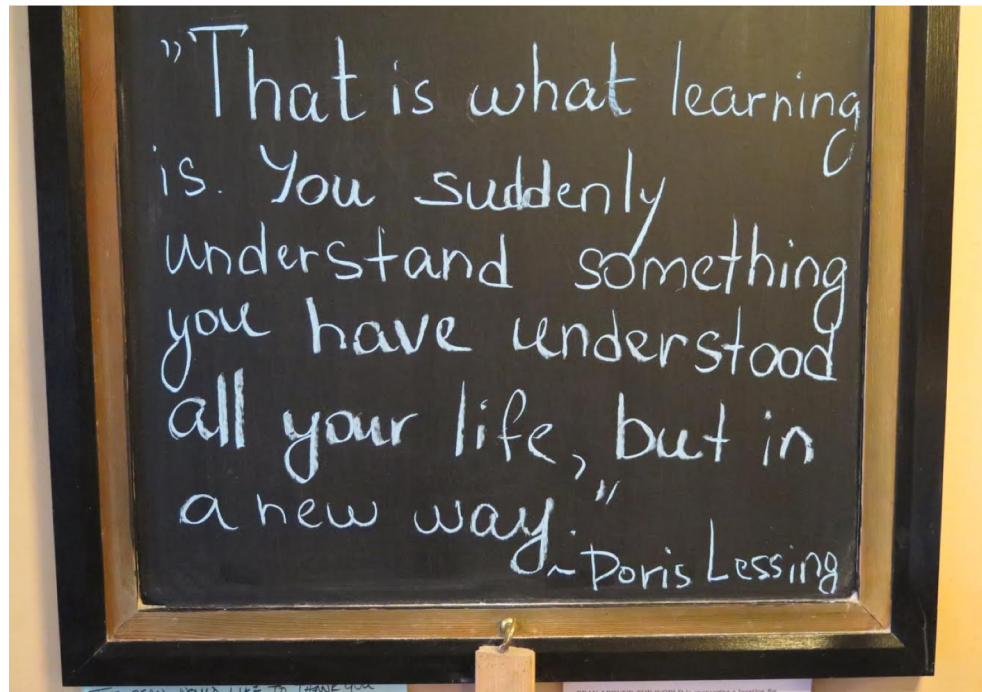 "That is what learning
is. You suddenly
understand something
you have understood
all your life, but in
a new way."
~ Doris Lessing
LIKE TO THANK YOU